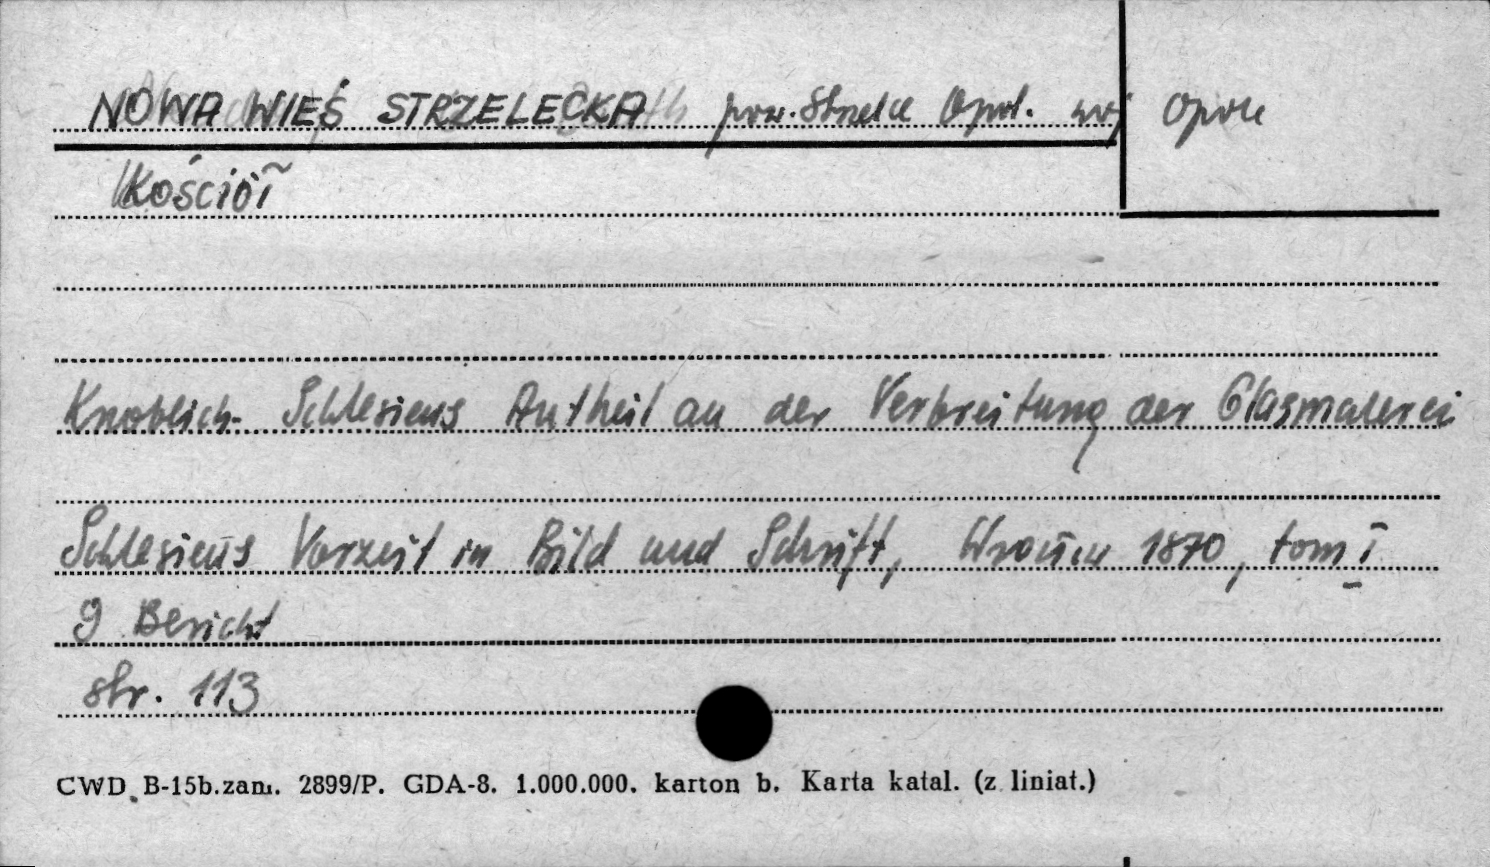 NOWA WIEŚ STRZELECKA pow. Strzelce Opol. woj Opole
Kościół
Knoblich- Schlesiens Antheil an der Verbreitung der Glasmalerei
Schlesiens Vorzeit in Bild und Schrift, Wrocław 1870, tom I
9 Bericht
str. 113
CWD B-15b.zam. 2899/P. GDA-8. 1.000.000. karton b. Karta katal. (z liniat.)